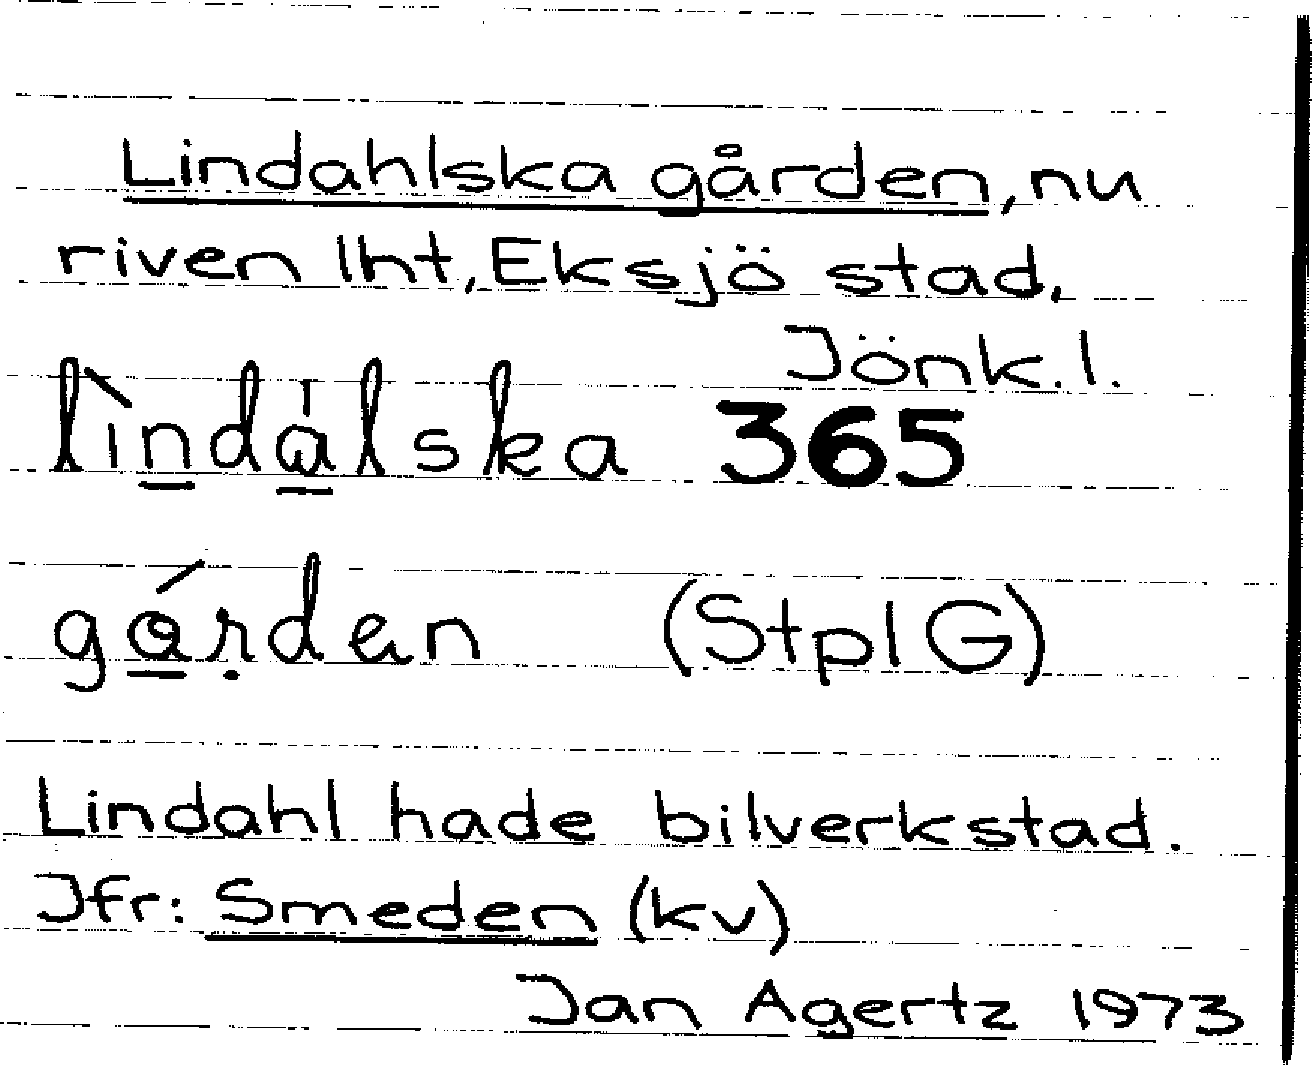 Lindahlska gården, nu
riven lht, Eksjö stad,
Jönk. l.
lìnda̍lska 365
gárden (Stpl G)
Lindahl hade bilverkstad.
Jfr: Smeden (kv)
Jan Agertz 1973